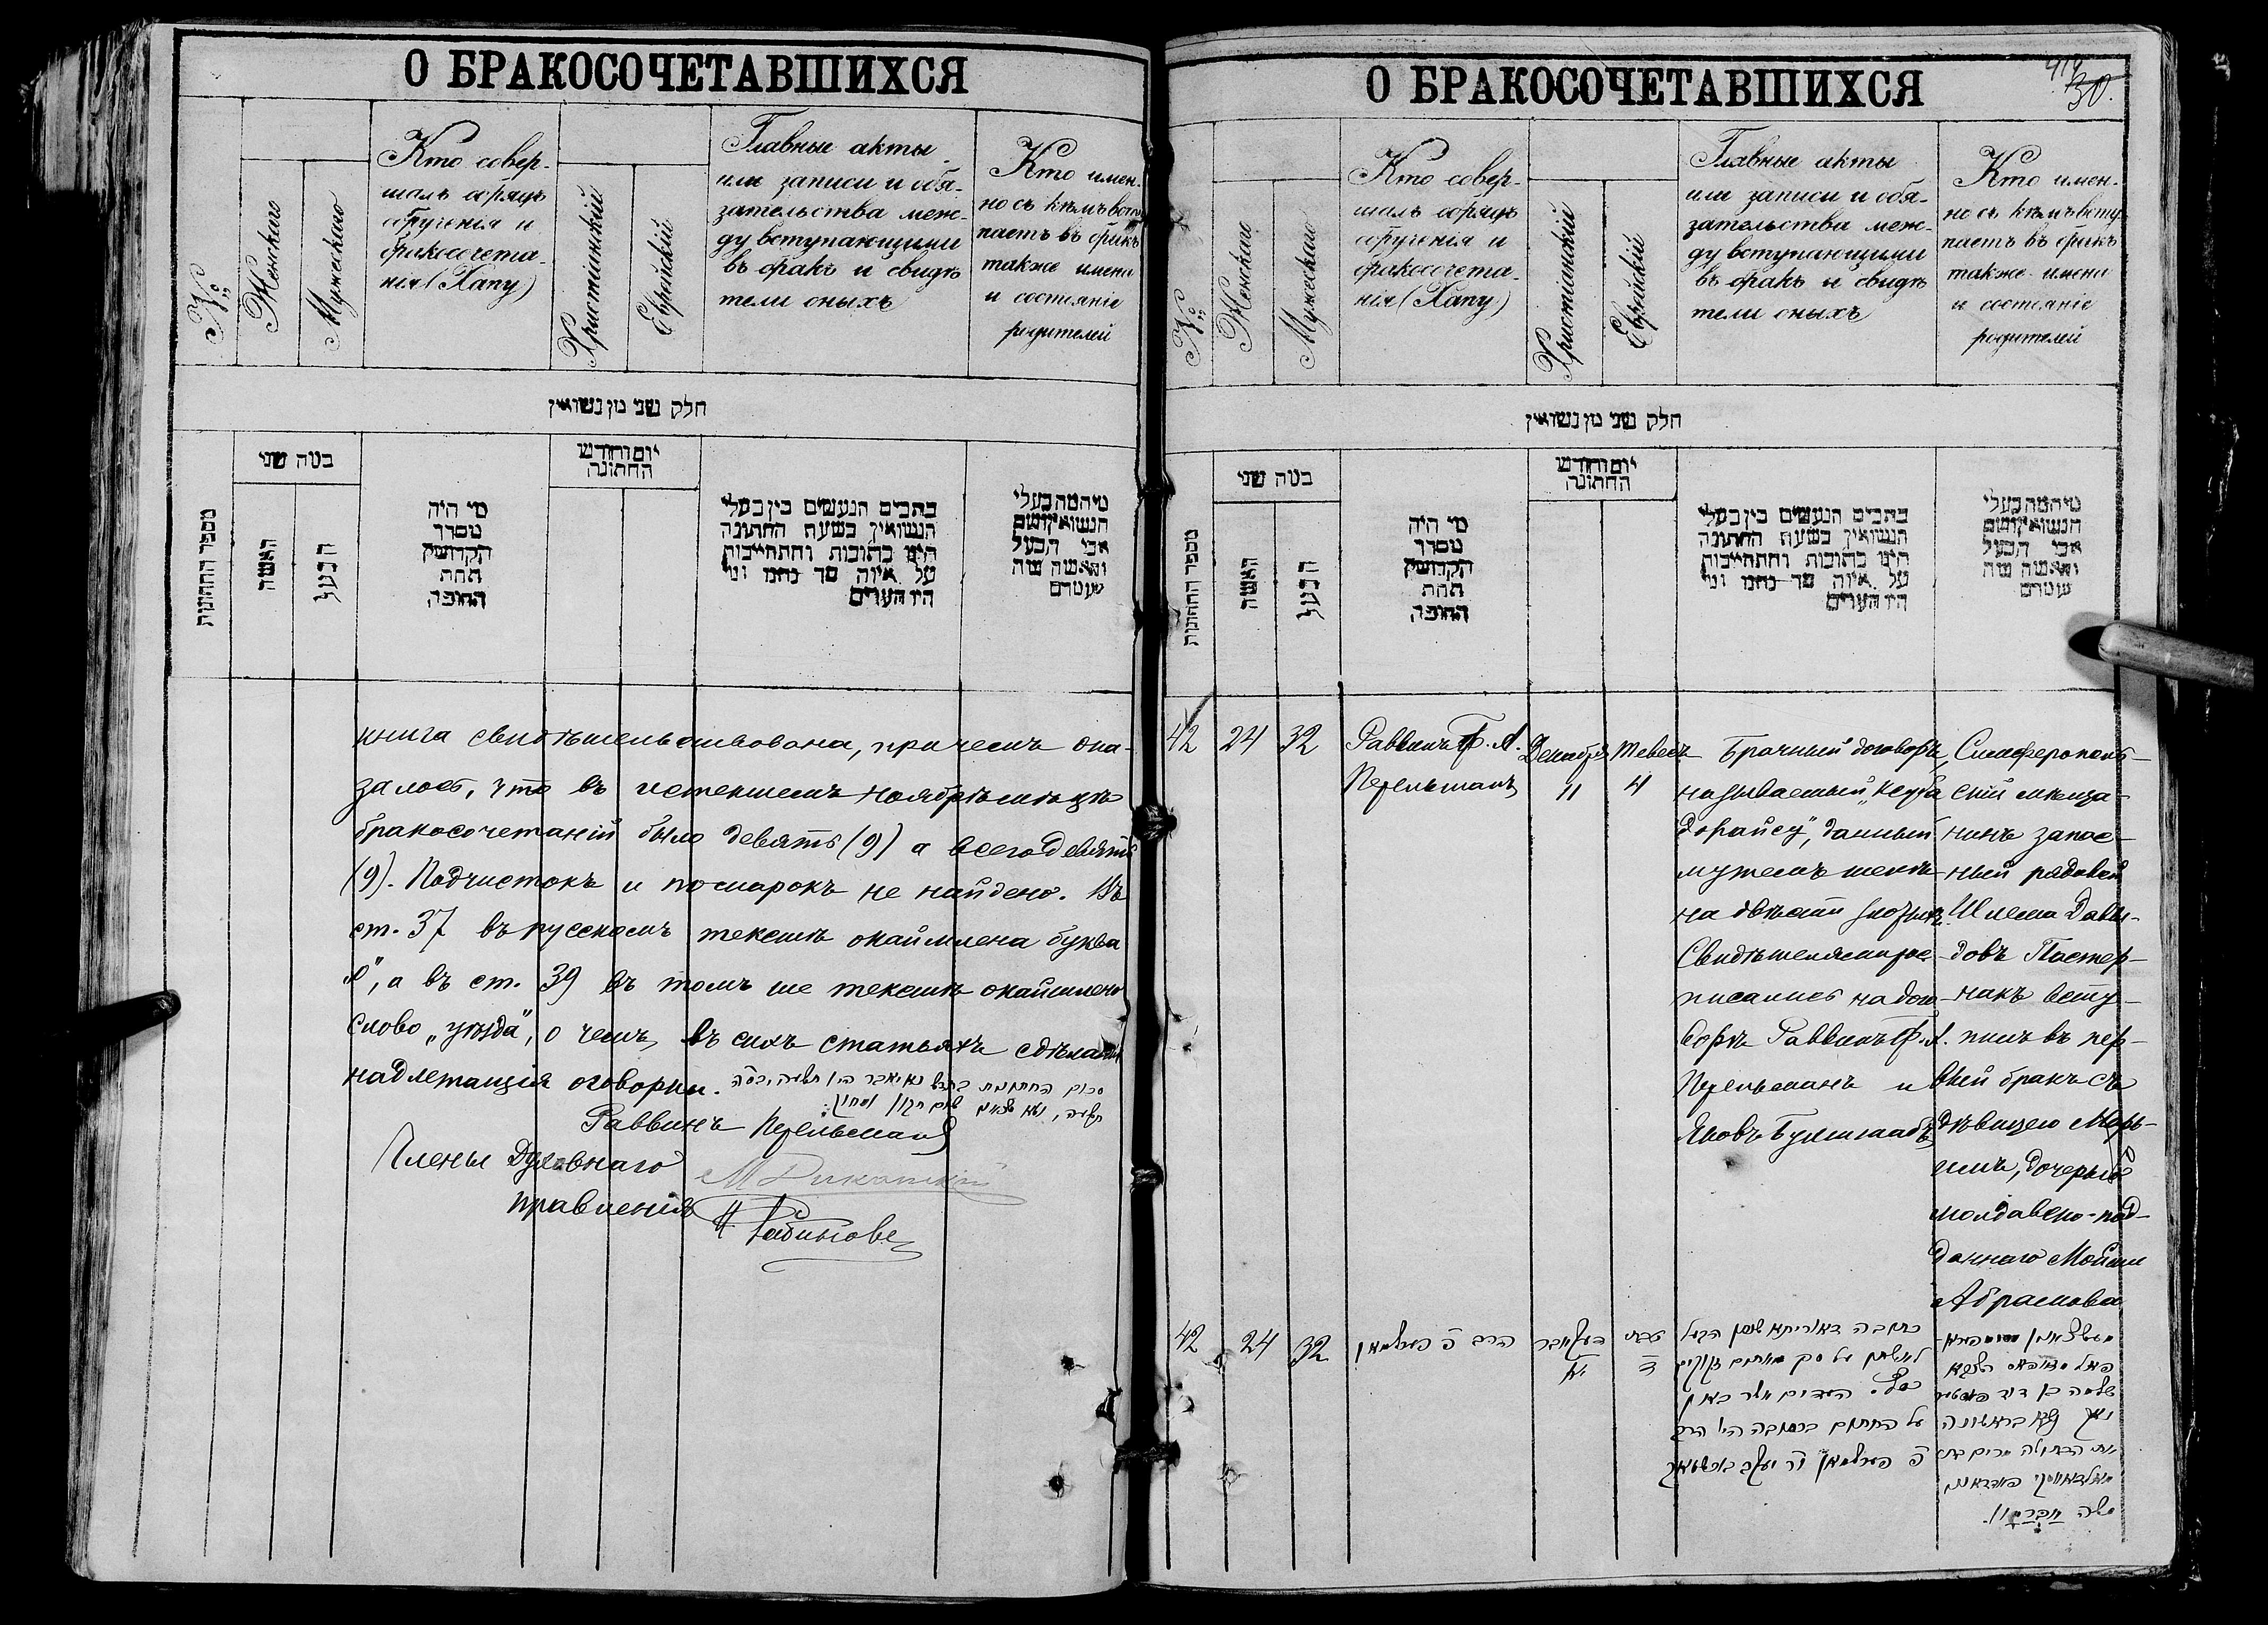 О БРАКОСОЧЕТАВШИХСЯ
№
Женскаго
Мужескаго
Кто совер-
шалъ обрядъ
обрученія и
бракосочета-
нія (Хапу)
Христіанскій
Еврейскій
Главные акты
или записи и обя-
зательства меж-
ду вступающими
въ бракъ и свидѣ
тели оныхъ
Кто имен-
но съ кѣмъ всту
паетъ въ бракъ
также имена
и состояніе
родителей
חלק שני מן נשואין
מספר החתונות
במה שני
האשה
הבעל
מי היה
מסדר
הקדושין
תחת
החופה
יום וחודש
החתונה
כתבים הנעשים בין בעלי
הנשואין בשעת החתונה
היינו כתובות והתחייבות
על איזה סך נתנו ומי
היו העדים
מי המה בעלי
הנשואין ושם
אבי הבעל
והאשה
книга свидѣтельствована, при чемъ ока-
залось, что въ истекшемъ ноябрѣ мѣсяцѣ
бракосочетаній было девять (9) а всего девять
(9). Подчистокъ и помарокъ не найдено. Въ
ст. 37 въ русскомъ текстѣ окаймлена буква
а въ ст. 39 въ томъ же текстѣ окаймлено
слово „уѣзда", о чемъ въ сихъ статьяхъ сдѣланы
надлежащія оговорки.
Раввинъ Перельманъ
Члены Духовнаго
правленія
О БРАКОСОЧЕТАВШИХСЯ
414
30.
№
Женскаго
Мужескаго
Кто совер-
шалъ обрядъ
обрученія и
бракосочета-
нія (Хапу)
Христіанскій
Еврейскій
Главные акты
или записи и обя-
зательства меж-
ду вступающими
въ бракъ и свидѣ
тели оныхъ
Кто имен-
но съ кѣмъ всту
паетъ въ бракъ
также имена
и состояніе
родителей
חלק שני מן נשואין
מספר החתונות
במה שני
האשה
הבעל
מי היה
מסדר
הקדושין
תחת
החופה
יום וחודש
החתונה
כתבים הנעשים בין בעלי
הנשואין בשעת החתונה
היינו כתובות והתחייבות
על איזה סך נתנו ומי
היו העדים
מי המה בעלי
הנשואין ושם
אבי הבעל
והאשה
42
24
32
Раввинъ Ф. А.
Перельманъ
Декабря
11
Тевесъ
4
Брачный договоръ,
называемый „Ксуба
Дорайсу", данный
мужемъ женѣ
на двѣсти злотыхъ.
Свидѣтелями рос-
писались на дого-
ворѣ Раввинъ Ф. А.
Перельманъ и
Яковъ
Симферополь-
скій мѣща-
нинъ запас-
ный рядовой
Шлема Давы-
довъ Пастер-
накъ всту-
пилъ въ пер-
вый бракъ съ
дѣвицею Марь-
имъ, дочерью
молдавско-под-
даннаго Мойши
Абрамова
42
24
32
הרב פ פערלמאן
דעקאבר
יא
טבת
ד
כתובה דאורייתא שנתן הבעל
לאשתו על סך מאתים זקוקים
כסף. העדים אשר באו
על החתום בכתובה היו הרב
שלמה בן דוד פאסטער
נאק נשא בראשונה
את הבתולה מרים בת
משה